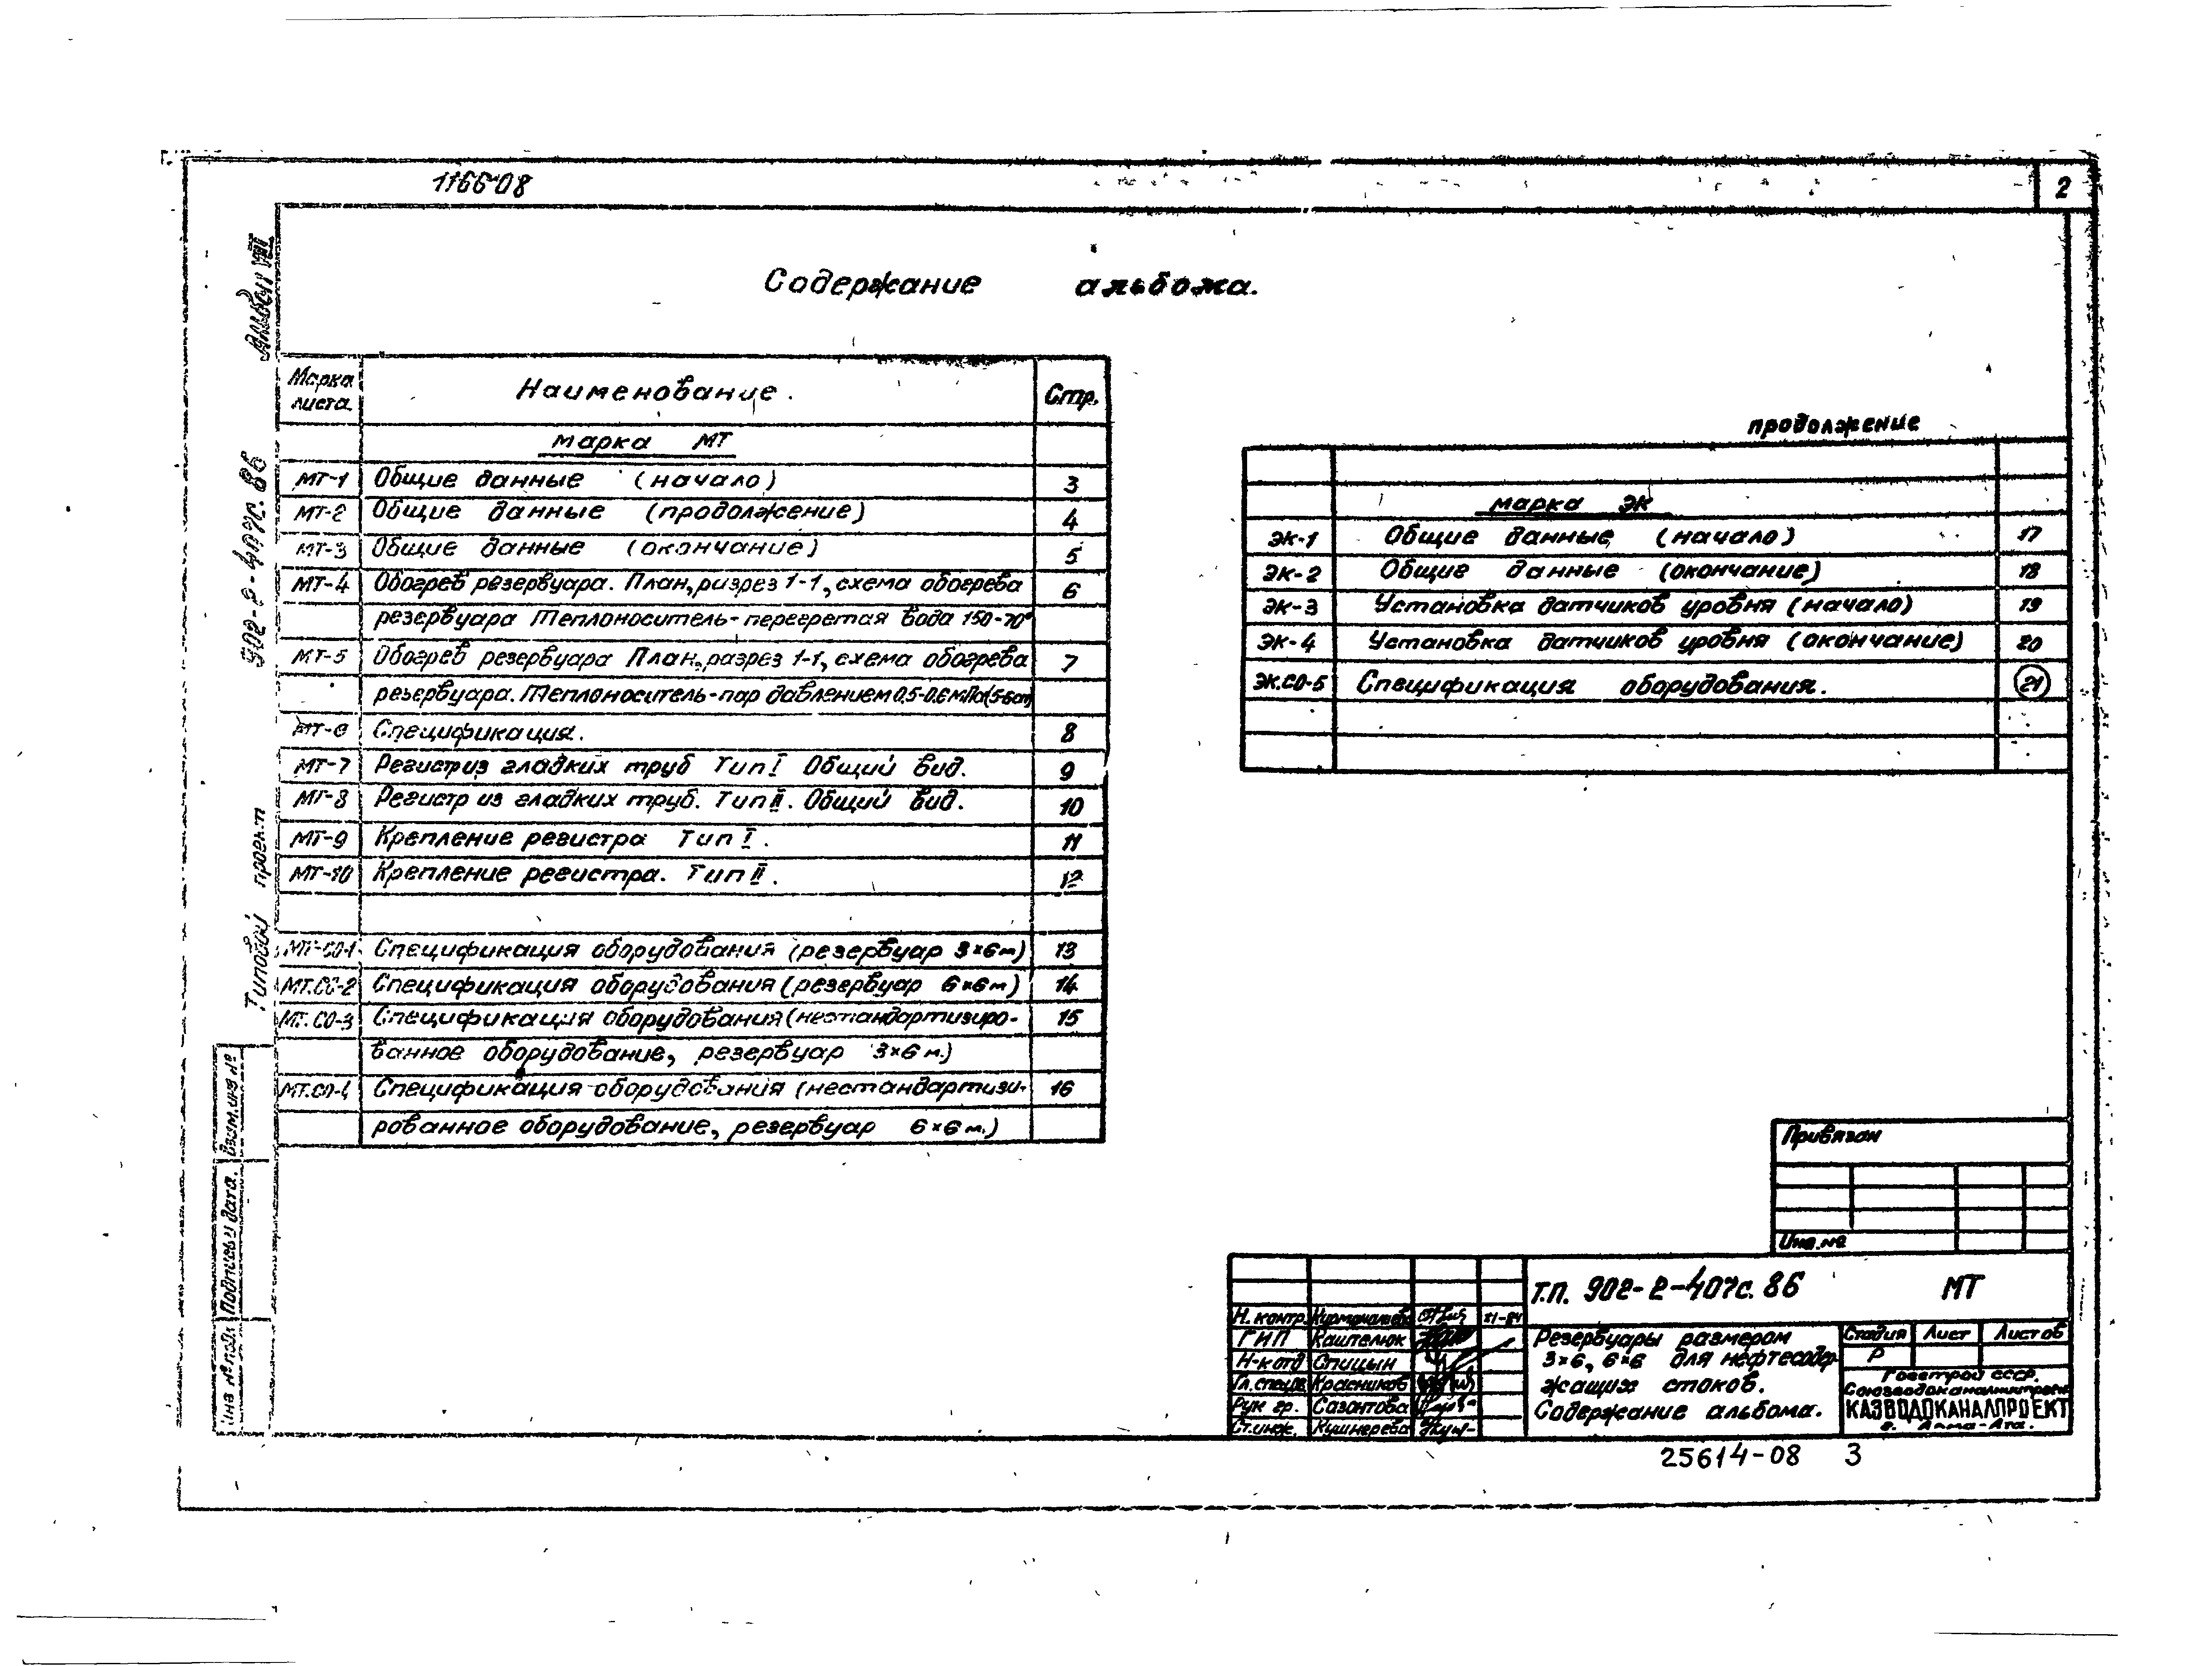 1166-08
2
Содержание альбома.
Альбом VIII
Типовой проект 902-2-407с.86
Марка листа. Наименование. Стр.
марка МТ
МТ-1 Общие данные (начало) 3
МТ-2 Общие данные (продолжение) 4
МТ-3 Общие данные (окончание) 5
МТ-4 Обогрев резервуара. План, разрез 1-1, схема обогрева 6
резервуара Теплоноситель-перегретая вода 150-70°
МТ-5 Обогрев резервуара План, разрез 1-1, схема обогрева 7
резервуара. Теплоноситель-пар давлением 0.5-0.6 мПа (5-6ат)
МТ-6 Спецификация. 8
МТ-7 Регистр из гладких труб Тип I Общий вид. 9
МТ-8 Регистр из гладких труб. Тип II. Общий вид. 10
МТ-9 Крепление регистра Тип I. 11
МТ-10 Крепление регистра. Тип II. 12
МТ-СО-1 Спецификация оборудования (резервуар 3×6м) 13
МТ.СО-2 Спецификация оборудования (резервуар 6×6м) 14
МТ.СО-3 Спецификация оборудования (нестандартизиро- 15
ванное оборудование, резервуар 3×6 м.)
МТ.СО-4 Спецификация оборудования (нестандартизи- 16
рованное оборудование, резервуар 6×6 м.)
продолжение
марка ЭК
ЭК-1 Общие данные (начало) 17
ЭК-2 Общие данные (окончание) 18
ЭК-3 Установка датчиков уровня (начало) 19
ЭК-4 Установка датчиков уровня (окончание) 20
ЭК.СО-5 Спецификация оборудования. 21
Взам.инв №
Подпись и дата.
Инв № подл
Привязан
Инв.№
Т.П. 902-2-407с.86 МТ
Н.контр.
ГИП Каштелюк
Н-к отд Спицын
Гл.спец. Красников
Рук гр. Сазонтова
Ст.инж. Кушнерева
Резервуары размером
3×6, 6×6 для нефтесодер-
жащих стоков.
Содержание альбома.
Стадия Лист Листов
Р
Госстрой СССР.
Союзводоканалниипроект
КАЗВОДОКАНАЛПРОЕКТ
г. Алма-Ата.
25614-08 3